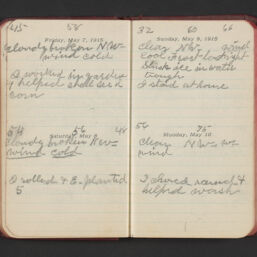 45 58
Friday, May 7, 1915
Cloudy broken N.W.
wind cold
I worked in garden
& helped shell seed
corn
54 56 48
Saturday, May 8
Cloudy broken N.W.
wind cold
I rolled & E. planted
5
32 60 66
Sunday, May 9, 1915
Clear N.W. wind
Cool Frost last night
ice in water
trough
I staid at home
56 75
Monday, May 10
Clear N.W.
wind
I chored around &
helped wash